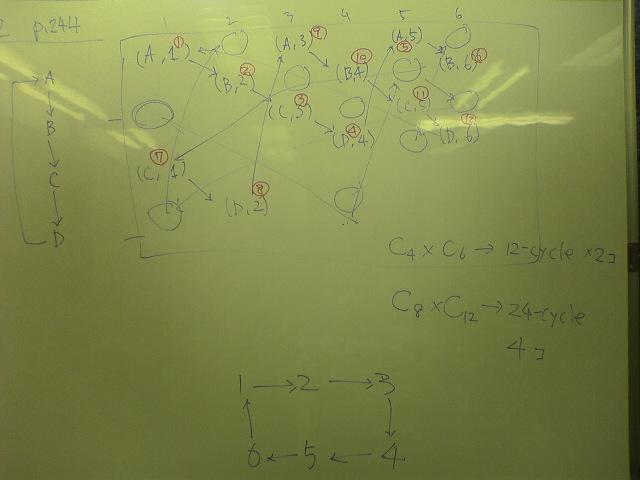 2 p.244
1 2 3 4 5 6
(A, 1) ① (A, 3) ⑨ (A, 5) ⑤
(B, 2) ② (B, 4) ⑩ (B, 6) ⑥
(C, 3) ③ (C, 5) ⑪
(D, 4) ④ (D, 6) ⑫
(C, 1) ⑦
(D, 2) ⑧
A
B
C
D
C4 × C6 → 12-cycle × 2コ
C8 × C12 → 24-cycle
4コ
1 → 2 → 3
6 ← 5 ← 4